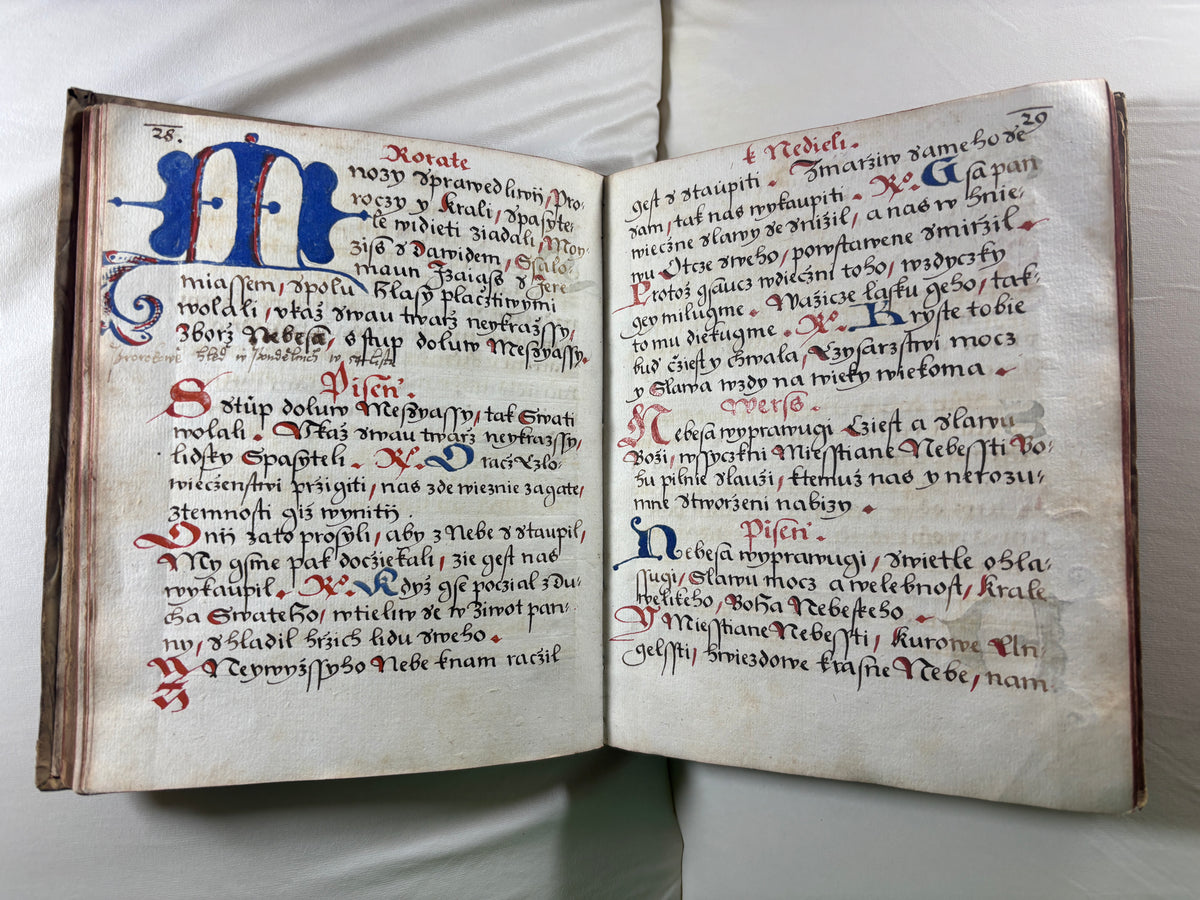 28.
Rorate
Mnozy sprawedliwij, Pro-
roczy y Krali, spasyte-
le widieti ziadali, Moy-
ziss s Dawidem, Ssalo-
maun Izaiass s Jere
miassem, spolu hlasy placztiwymi
wolali, vkaž swau twarž neykrassy,
Zborž Nebesa, sstup doluw Messyassy.
Pisen.
Sstup doluw Messyassy, tak Swati
wolali. Vkaž swau twarž neykrassy,
lidsky Spasyteli. R. O racž Czlo-
wieczenstwi pržigiti, nas zde wieznie zagate,
ztemnosti giž wynitij.
Onij zato prosyli, aby z Nebe sstaupil,
My gsme pak docziekali, zie gest nas
wykaupil. R. Když gse poczial z Du-
cha Swateho, wtieliw se w žiwot pan-
ny, shladil hržich lidu sweho.
Z Neywyžssyho Nebe knam racžil
29
k Nedieli.
gest sstaupiti. Zmarziw sameho se
sam, tak nas wykaupiti. R. Gsa pan
wieczne slawy se snižil, a nas w hnie-
wu Otcze sweho, powstawene smiržil.
Protož gsaucz wdieczni toho, wzdyczky
gey milugme. Wažicze lasku geho, tak-
to mu diekugme. R. Kryste tobie
bud cžiest y chwala, Czysarzstwi mocz
y Slawa wzdy na wieky wiekoma.
Werss.
Nebesa wyprawugi Cziest a slawu
Boži, wssyczkni Miesstiane Nebessti Bo-
hu pilnie slauži, ktemuž nas y nerozu-
mne stworzeni nabizy.
Pisen.
Nebesa wyprawugi, swietle ohla-
ssugi, Slawu mocz a welebnost, Krale
welikeho, Boha Nebeskeho.
Y Miesstiane Nebessti, Kurowe An-
gelssti, hwiezdowe krasne Nebe, nam